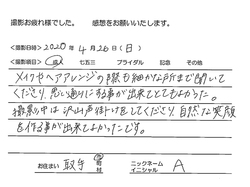 撮影お疲れ様でした。 感想をお願いいたします。
<撮影日時> 2020年4月26日(日)
<撮影項目> 成人 七五三 ブライダル 記念 その他
メイクやヘアアレンジの際も細かな所まで聞いて
くださり、思い通りにする事が出来てとてもよかった。
撮影中は沢山声掛けをしてくださり、自然な笑顔
を作る事が出来てよかったです。
お住まい 取手 市 ニックネーム イニシャル A